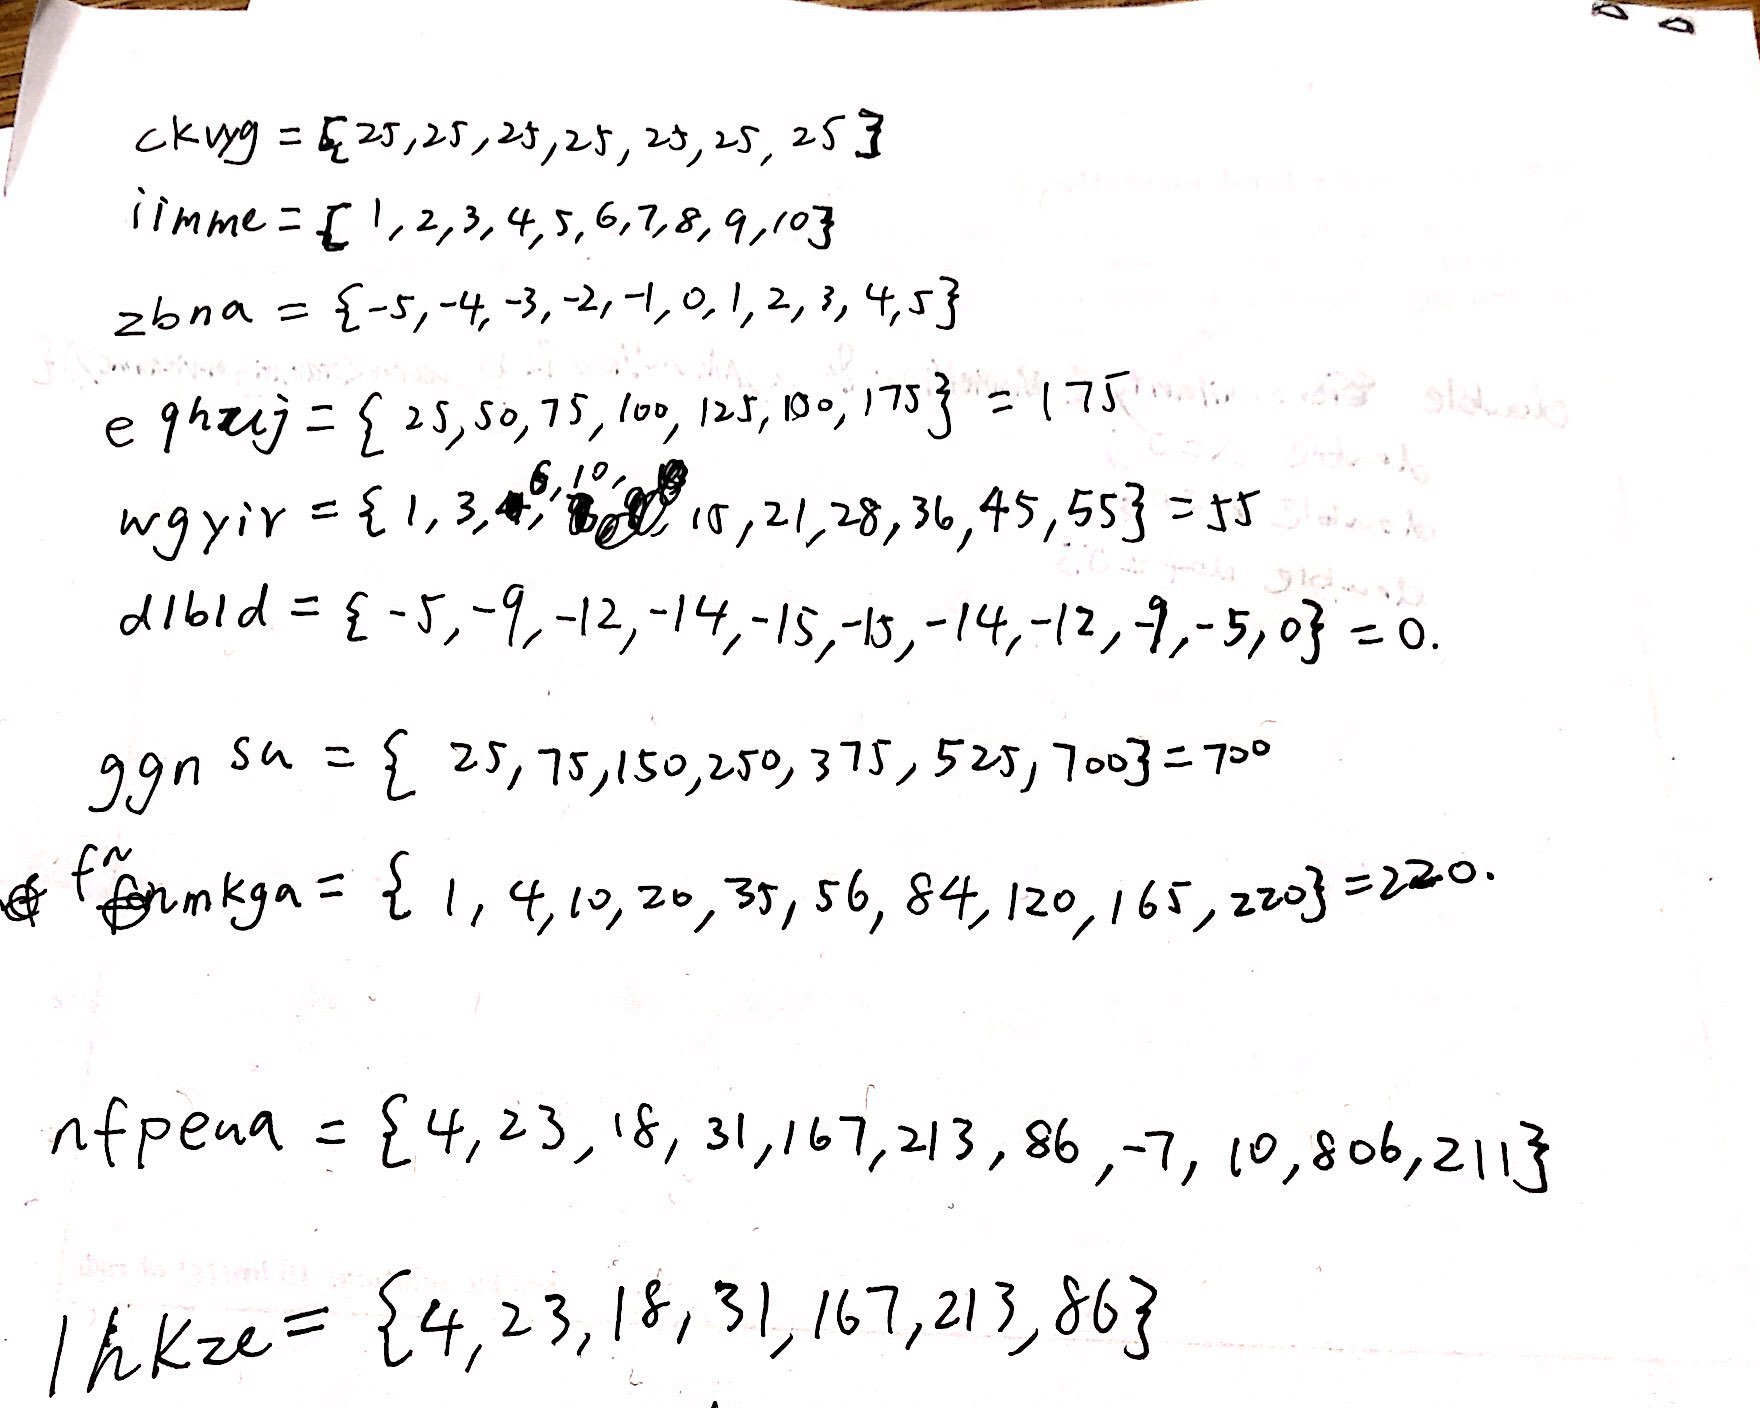 ckvyg = {25,25,25,25,25,25,25}
iimme = { 1,2,3,4,5,6,7,8,9,10}
zbna = {-5,-4,-3,-2,-1,0,1,2,3,4,5}
eqhzuj = { 25,50,75,100,125,150,175} = 175
wgyir = {1,3,6,10,15,21,28,36,45,55} = 55
dlbld = {-5,-9,-12,-14,-15,-15,-14,-12,-9,-5,0} = 0.
ggnsu = { 25,75,150,250,375,525,700} = 700
fnmkga = { 1,4,10,20,35,56,84,120,165,220} = 220.
nfpeua = {4,23,18,31,167,213,86,-7,10,806,211}
lhkze = {4,23,18,31,167,213,86}